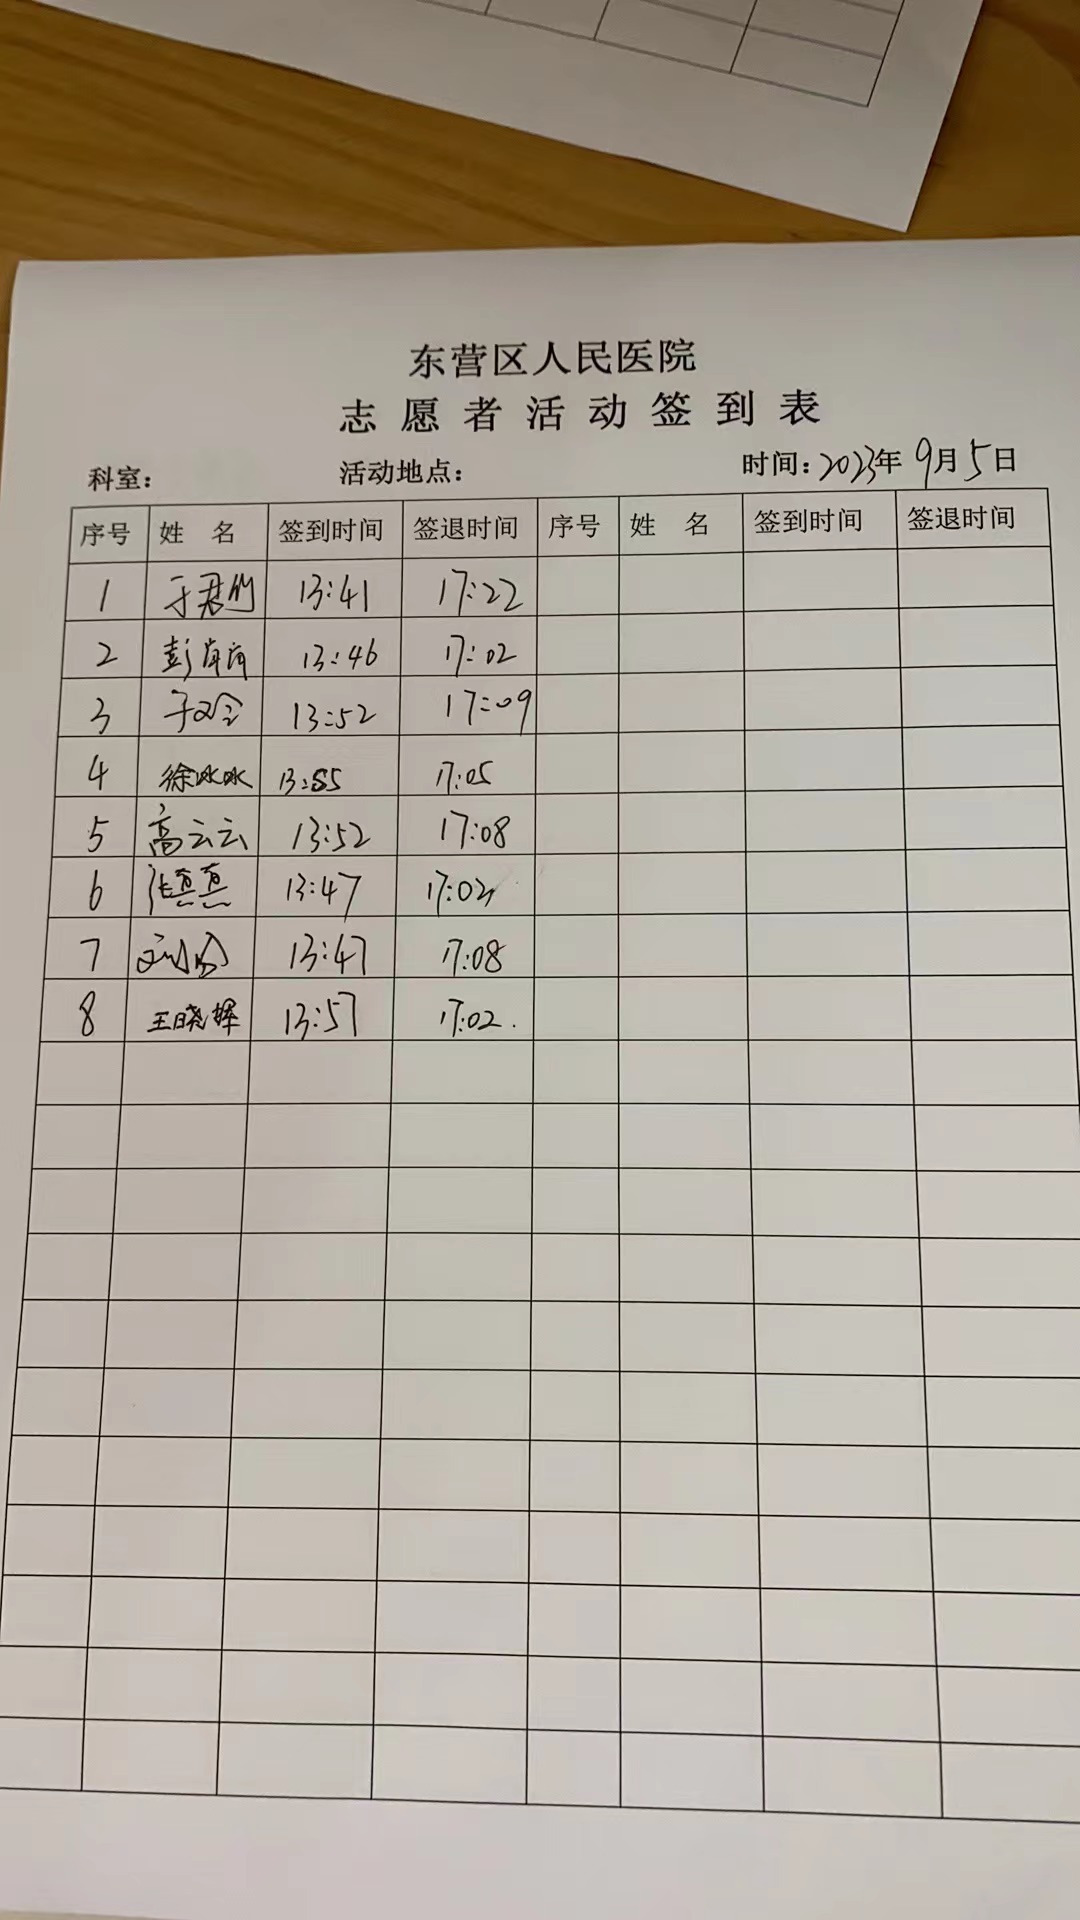 东营区人民医院
志愿者活动签到表
科室： 活动地点： 时间：2023年9月5日
序号 姓名 签到时间 签退时间 序号 姓名 签到时间 签退时间
1 于君 13:41 17:22
2 彭 13:46 17:02
3 13:52 17:09
4 徐冰冰 13:55 17:05
5 高云云 13:52 17:08
6 张真真 13:47 17:02
7 刘 13:47 17:08
8 王晓辉 13:57 17:02.